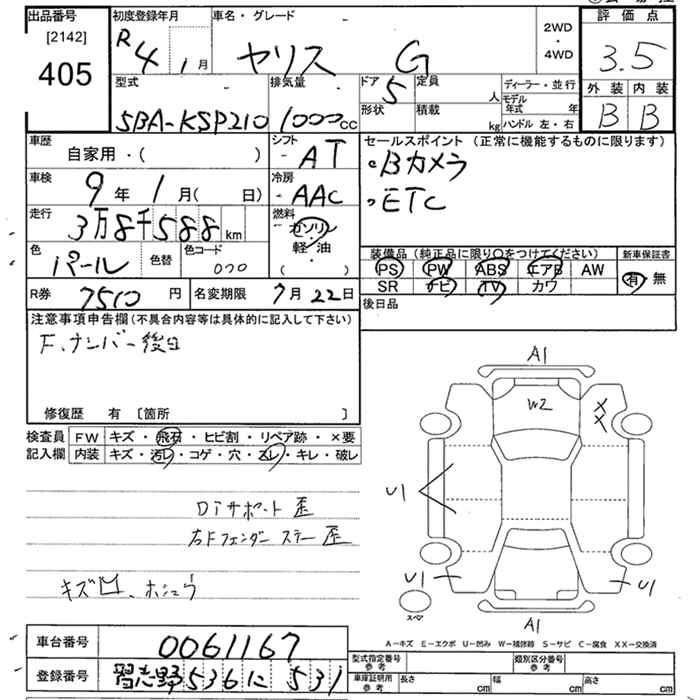 出品番号
[2142]
405
初度登録年月
R4 1月
車名・グレード
ヤリス G
2WD
・
4WD
評価点
3.5
外装 内装
B B
型式
5BA-KSP210
排気量
1000cc
ドア 5
形状
定員 人
積載 kg
ディーラー・並行
モデル年式 年
ハンドル 左・右
車歴 自家用・( )
シフト AT
車検 9年 1月( 日)
冷房 AAC
走行 3万8千588km
燃料 ガソリン
軽・油
( )
色 パール 色替
色コード 070
R券 7510円 名変期限 7月22日
セールスポイント(正常に機能するものに限ります)
Bカメラ
ETC
装備品(純正品に限り○をつけてください)
PS PW ABS エアB AW
SR ナビ TV カワ
新車保証書
有・無
後日品
注意事項申告欄(不具合内容等は具体的に記入して下さい)
F.ナンバー後日
修復歴 有 [箇所 ]
検査員記入欄
FW キズ・飛石・ヒビ割・リペア跡・×要
内装 キズ・汚レ・コゲ・穴・スレ・キレ・破レ
Diサポート 歪
右Fフェンダー ステー 歪
キズ凹、ホシュウ
A1
W2
XX
U1
U1
U1
スペア
A1
A-キズ E-エクボ U-凹み W-補修跡 S-サビ C-腐食 XX-交換済
車台番号 0061167
登録番号 習志野 536 に 531
型式指定番号 参考
類別区分番号 参考
車庫証明用 参考 長さ cm 幅 cm 高さ cm